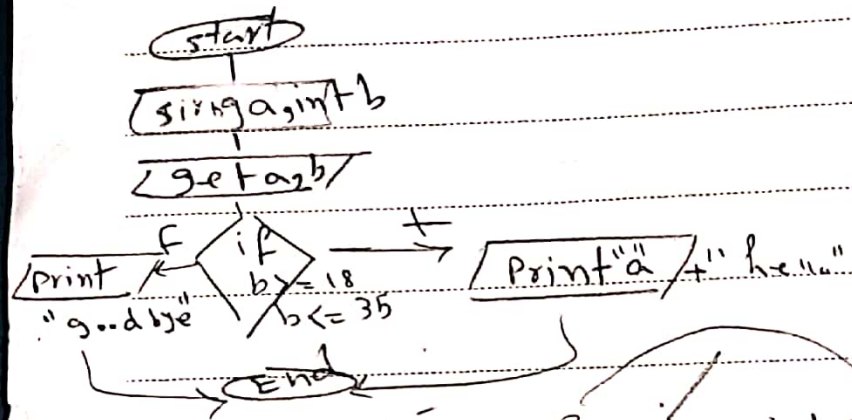 start
sirnga,int b
get a,b
F
if
b>=18
b<=35
t
print
"goodbye"
Print "a" +" he..."
End